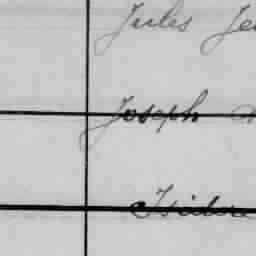 Jules Je
Joseph
Isidore